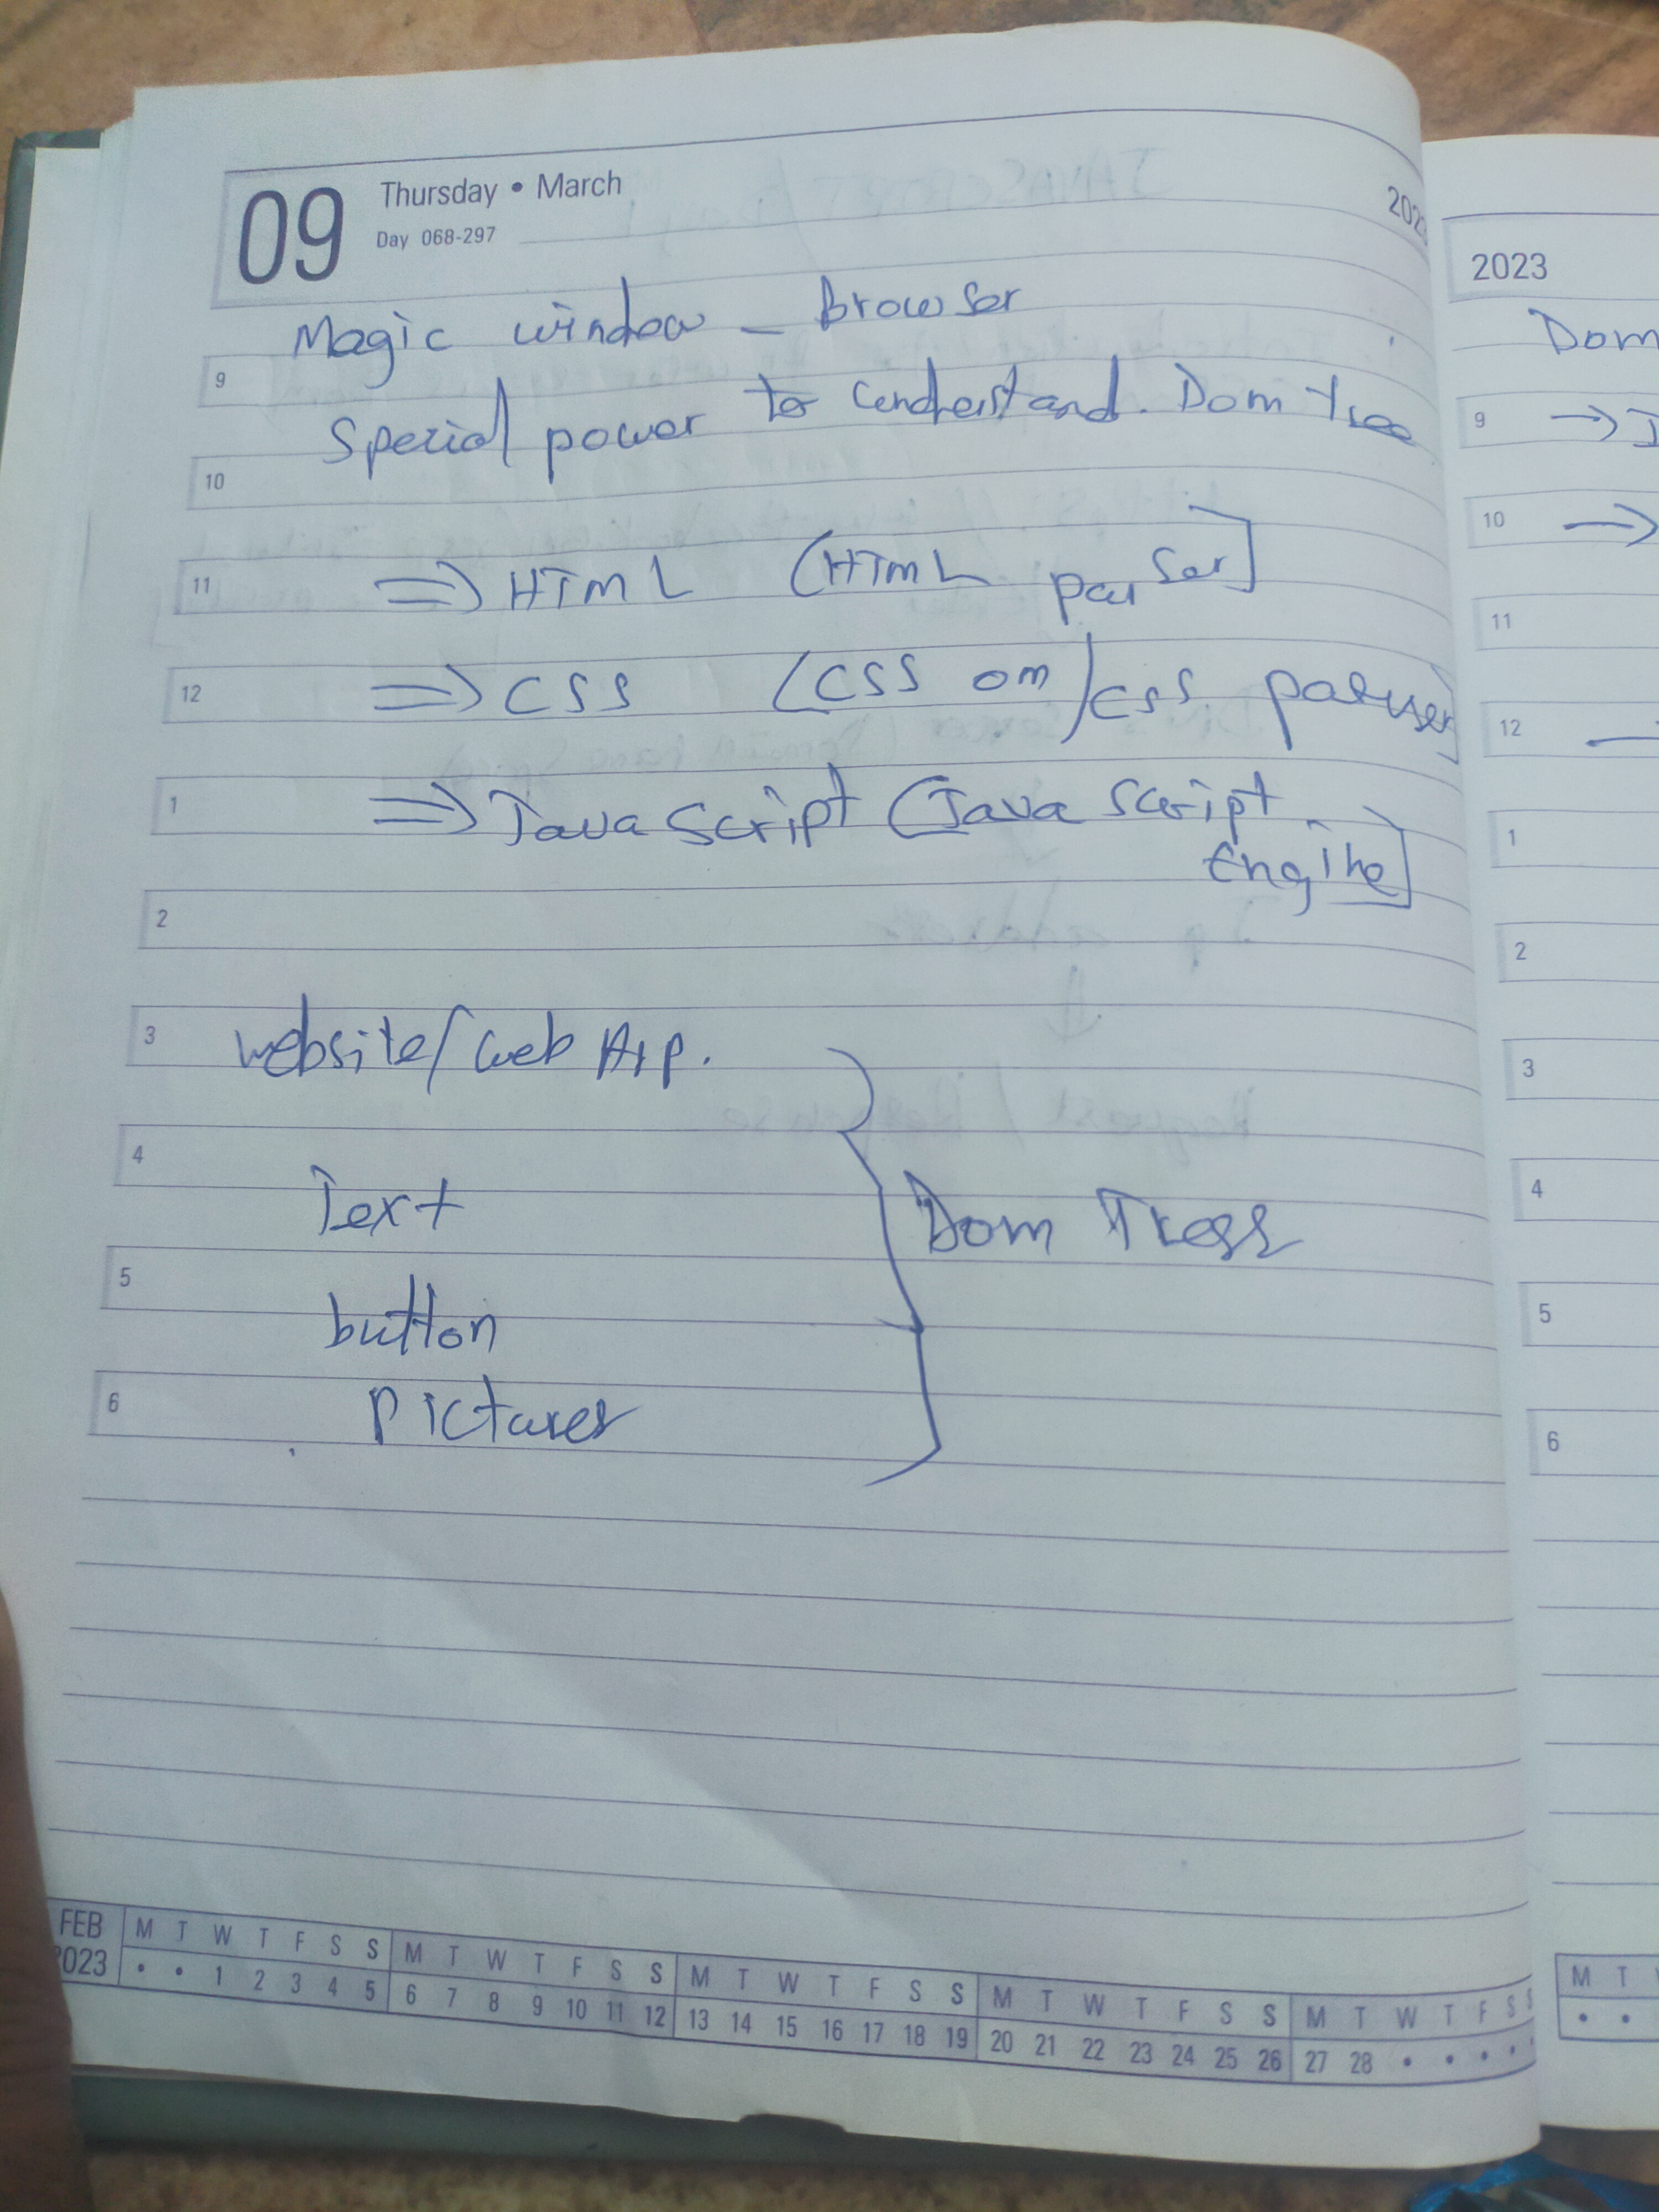 09 Thursday • March
Day 068-297
Magic window - Browser
9
Special power to understand. Dom Tree
10
11 => HTML (HTML parser]
12 => CSS (CSS om) CSS parser]
1 => JavaScript (JavaScript
Engine]
2
3 website/web App.
4
Text
Dom Trees
5
button
6 Pictures
FEB 2023
M T W T F S S M T W T F S S M T W T F S S M T W T F S S M T W T F S S
• • 1 2 3 4 5 6 7 8 9 10 11 12 13 14 15 16 17 18 19 20 21 22 23 24 25 26 27 28 • • • • •
2023
Dom
9 →
10 →
11
12
1
2
3
4
5
6
M T
• •